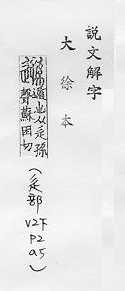 說文解字
大徐本
遁也从辵孫
聲蘇困切
(辵部
V2下
P2
a5)